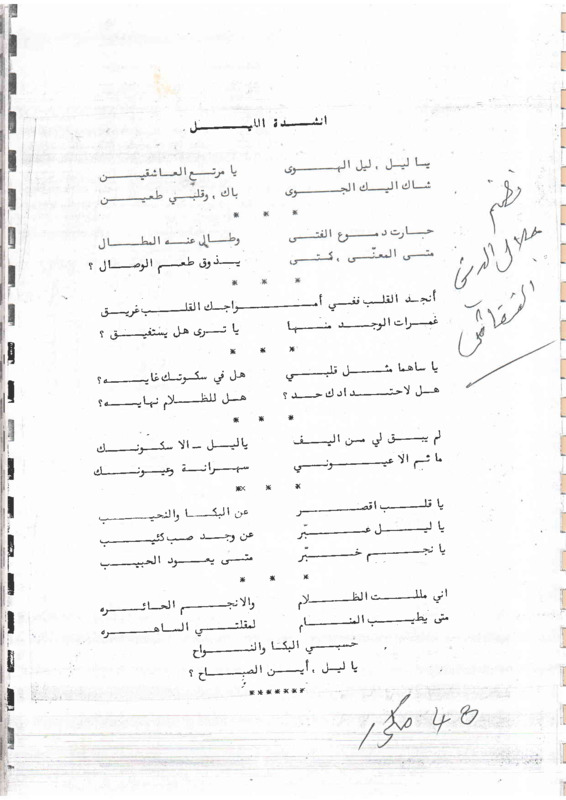 انشدة الليل
يا ليل ، ليل الهوى يا مرتع العاشقين
شاك اليك الجوى باك ، وقلبي طعين
* * *
حارت دموع الفتى وطال عنه المطال
متى المعنّى ، كتى يذوق طعم الوصال ؟
* * *
أنجد القلب ففي أمواجك القلب غريق
غمرات الوجد منها يا ترى هل يستفيق ؟
* * *
يا ساهما مثل قلبي هل في سكوتك غايه ؟
هل لاحتدادك حد ؟ هل للظلام نهايه ؟
* * *
لم يبق لي من اليف ياليل - الا سكونك
ما ثم الا عيوني سهرانة وعيونك
* * *
يا قلب اقصر عن البكا والنحيب
يا ليل عبّر عن وجد صب كئيب
يا نجم خبّر متى يعود الحبيب
* * *
اني مللت الظلام والانجم الحائره
متى يطيب المنام لمقلتي الساهره
حسبي البكا والنواح
يا ليل ، أين الصباح ؟
*******
نظم
جلال الدين
النقاش
48 مكرر